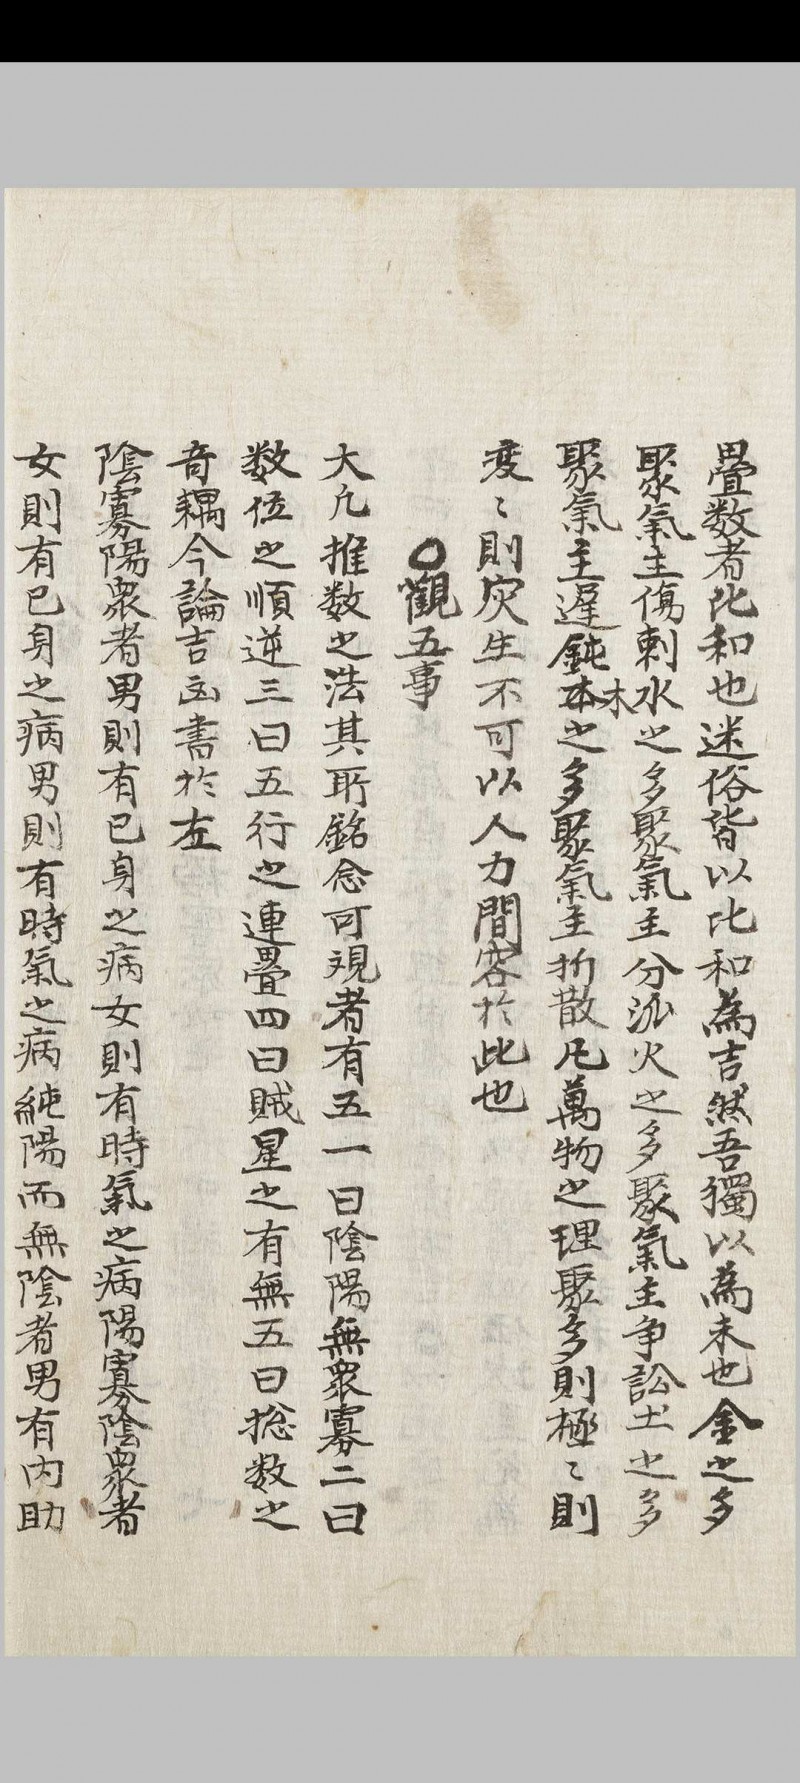 疊数者比和也迷俗皆以比和為吉然吾獨以為未也金之多
聚氣主傷刺水之多聚氣主分泒火之多聚氣主争訟土之多
聚氣主遲鈍木之多聚氣主折散凡萬物之理聚多則極〻則
変〻則灾生不可以人力間容於此也
○觀五事
大凡推数之法其所銘念可視者有五一曰陰陽無衆寡二曰
数位之順逆三曰五行之連疊四曰賊星之有無五曰揔数之
奇耦今論吉凶書於左
陰寡陽衆者男則有己身之病女則有時氣之病陽寡陰衆者
女則有己身之病男則有時氣之病純陽而無陰者男有内助